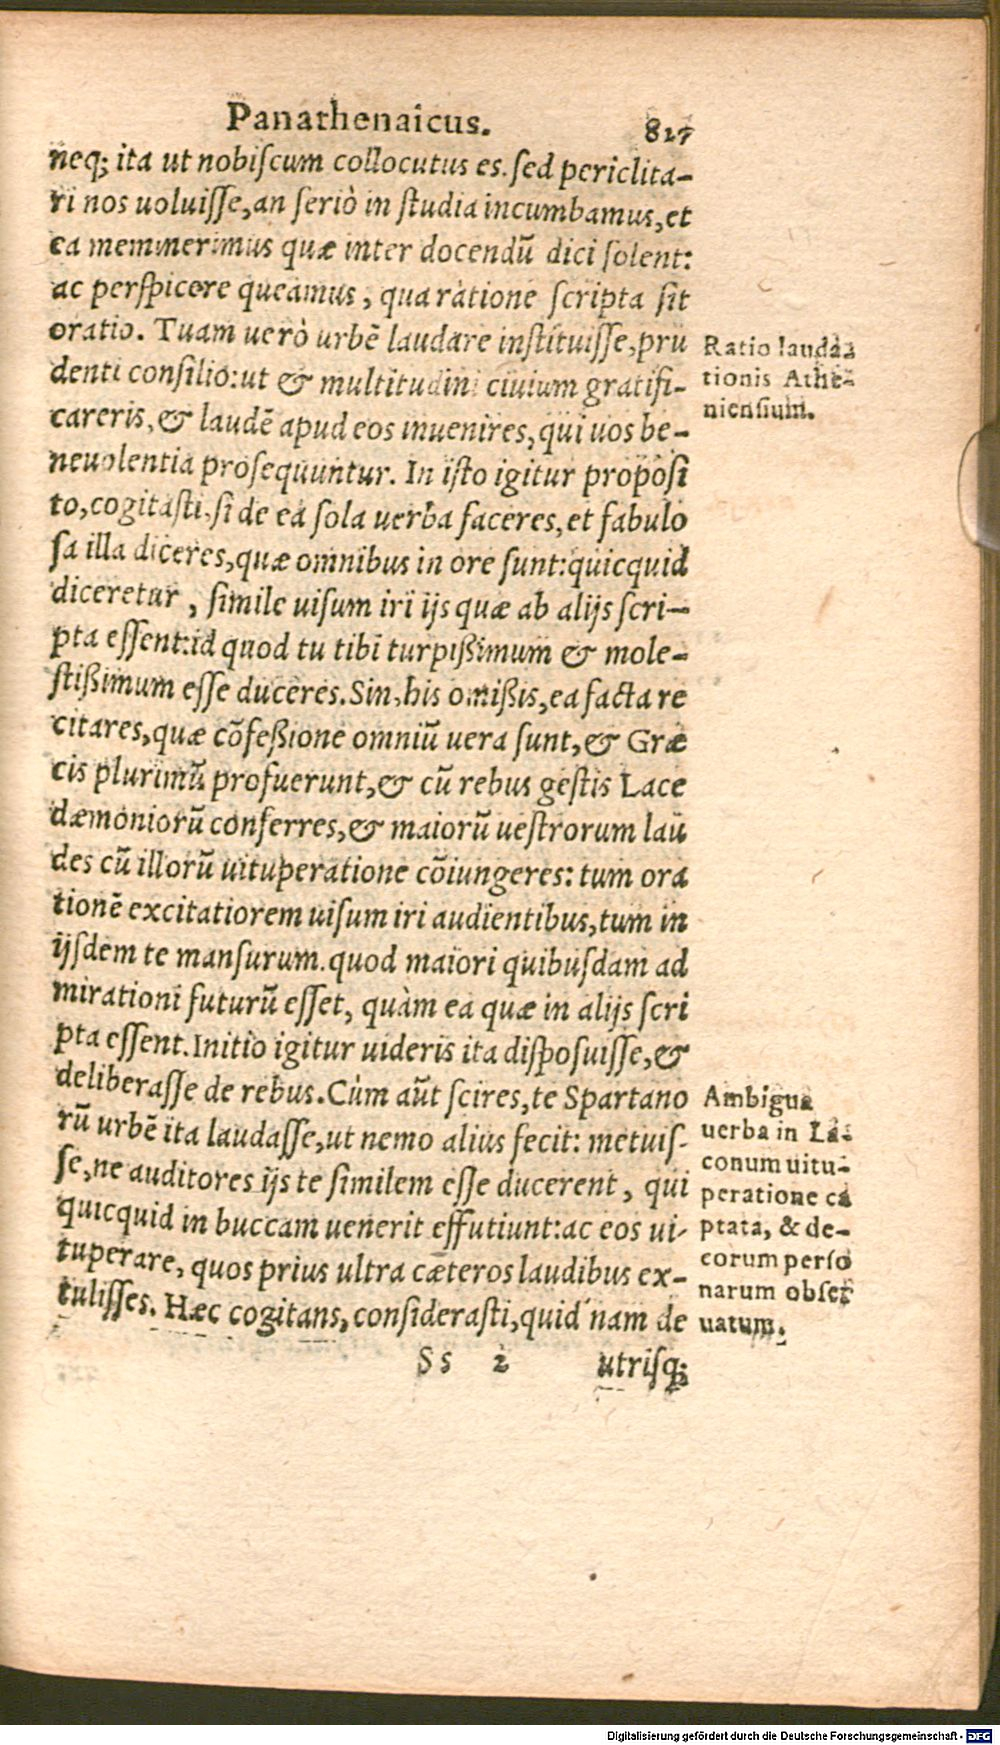 Panathenaicus. 827
neq; ita ut nobiſcum collocutus es. ſed periclita-
ri nos uoluiſſe, an ſeriò in ſtudia incumbamus, et
ea meminerimus quæ inter docendũ dici ſolent:
ac perſpicere queamus, qua ratione ſcripta ſit
oratio. Tuam uerò urbẽ laudare inſtituiſſe, pru
denti conſilio: ut & multitudini ciuium gratifi-
careris, & laudẽ apud eos inuenires, qui uos be-
neuolentia proſequuntur. In iſto igitur propoſi
to, cogitaſti, ſi de ea ſola uerba faceres, et fabulo
ſa illa diceres, quæ omnibus in ore ſunt: quicquid
diceretur, ſimile uiſum iri ijs quæ ab alijs ſcri-
pta eſſent: id quod tu tibi turpißimum & mole-
ſtißimum eſſe duceres. Sin, his omißis, ea facta re
citares, quæ cõfeßione omniũ uera ſunt, & Græ
cis plurimũ profuerunt, & cũ rebus geſtis Lace
dæmoniorũ conferres, & maiorũ ueſtrorum lau
des cũ illorũ uituperatione cõiungeres: tum ora
tionẽ excitatiorem uiſum iri audientibus, tum in
ijſdem te manſurum. quod maiori quibuſdam ad
mirationi futurũ eſſet, quàm ea quæ in alijs ſcri
pta eſſent. Initio igitur uideris ita diſpoſuiſſe, &
deliberaſſe de rebus. Cùm aũt ſcires, te Spartano
rũ urbẽ ita laudaſſe, ut nemo alius fecit: metuiſ-
ſe, ne auditores ijs te ſimilem eſſe ducerent, qui
quicquid in buccam uenerit effutiunt: ac eos ui-
tuperare, quos prius ultra cæteros laudibus ex-
tuliſſes. Hæc cogitans, conſideraſti, quid nam de
Ss 2 utriſq;
Ratio lauda-
tionis Athe-
nienſium.
Ambigua
uerba in La-
conum uitu-
peratione ca
ptata, & de-
corum perſo
narum obſer
uatum.
Digitalisierung gefördert durch die Deutsche Forschungsgemeinschaft - DFG